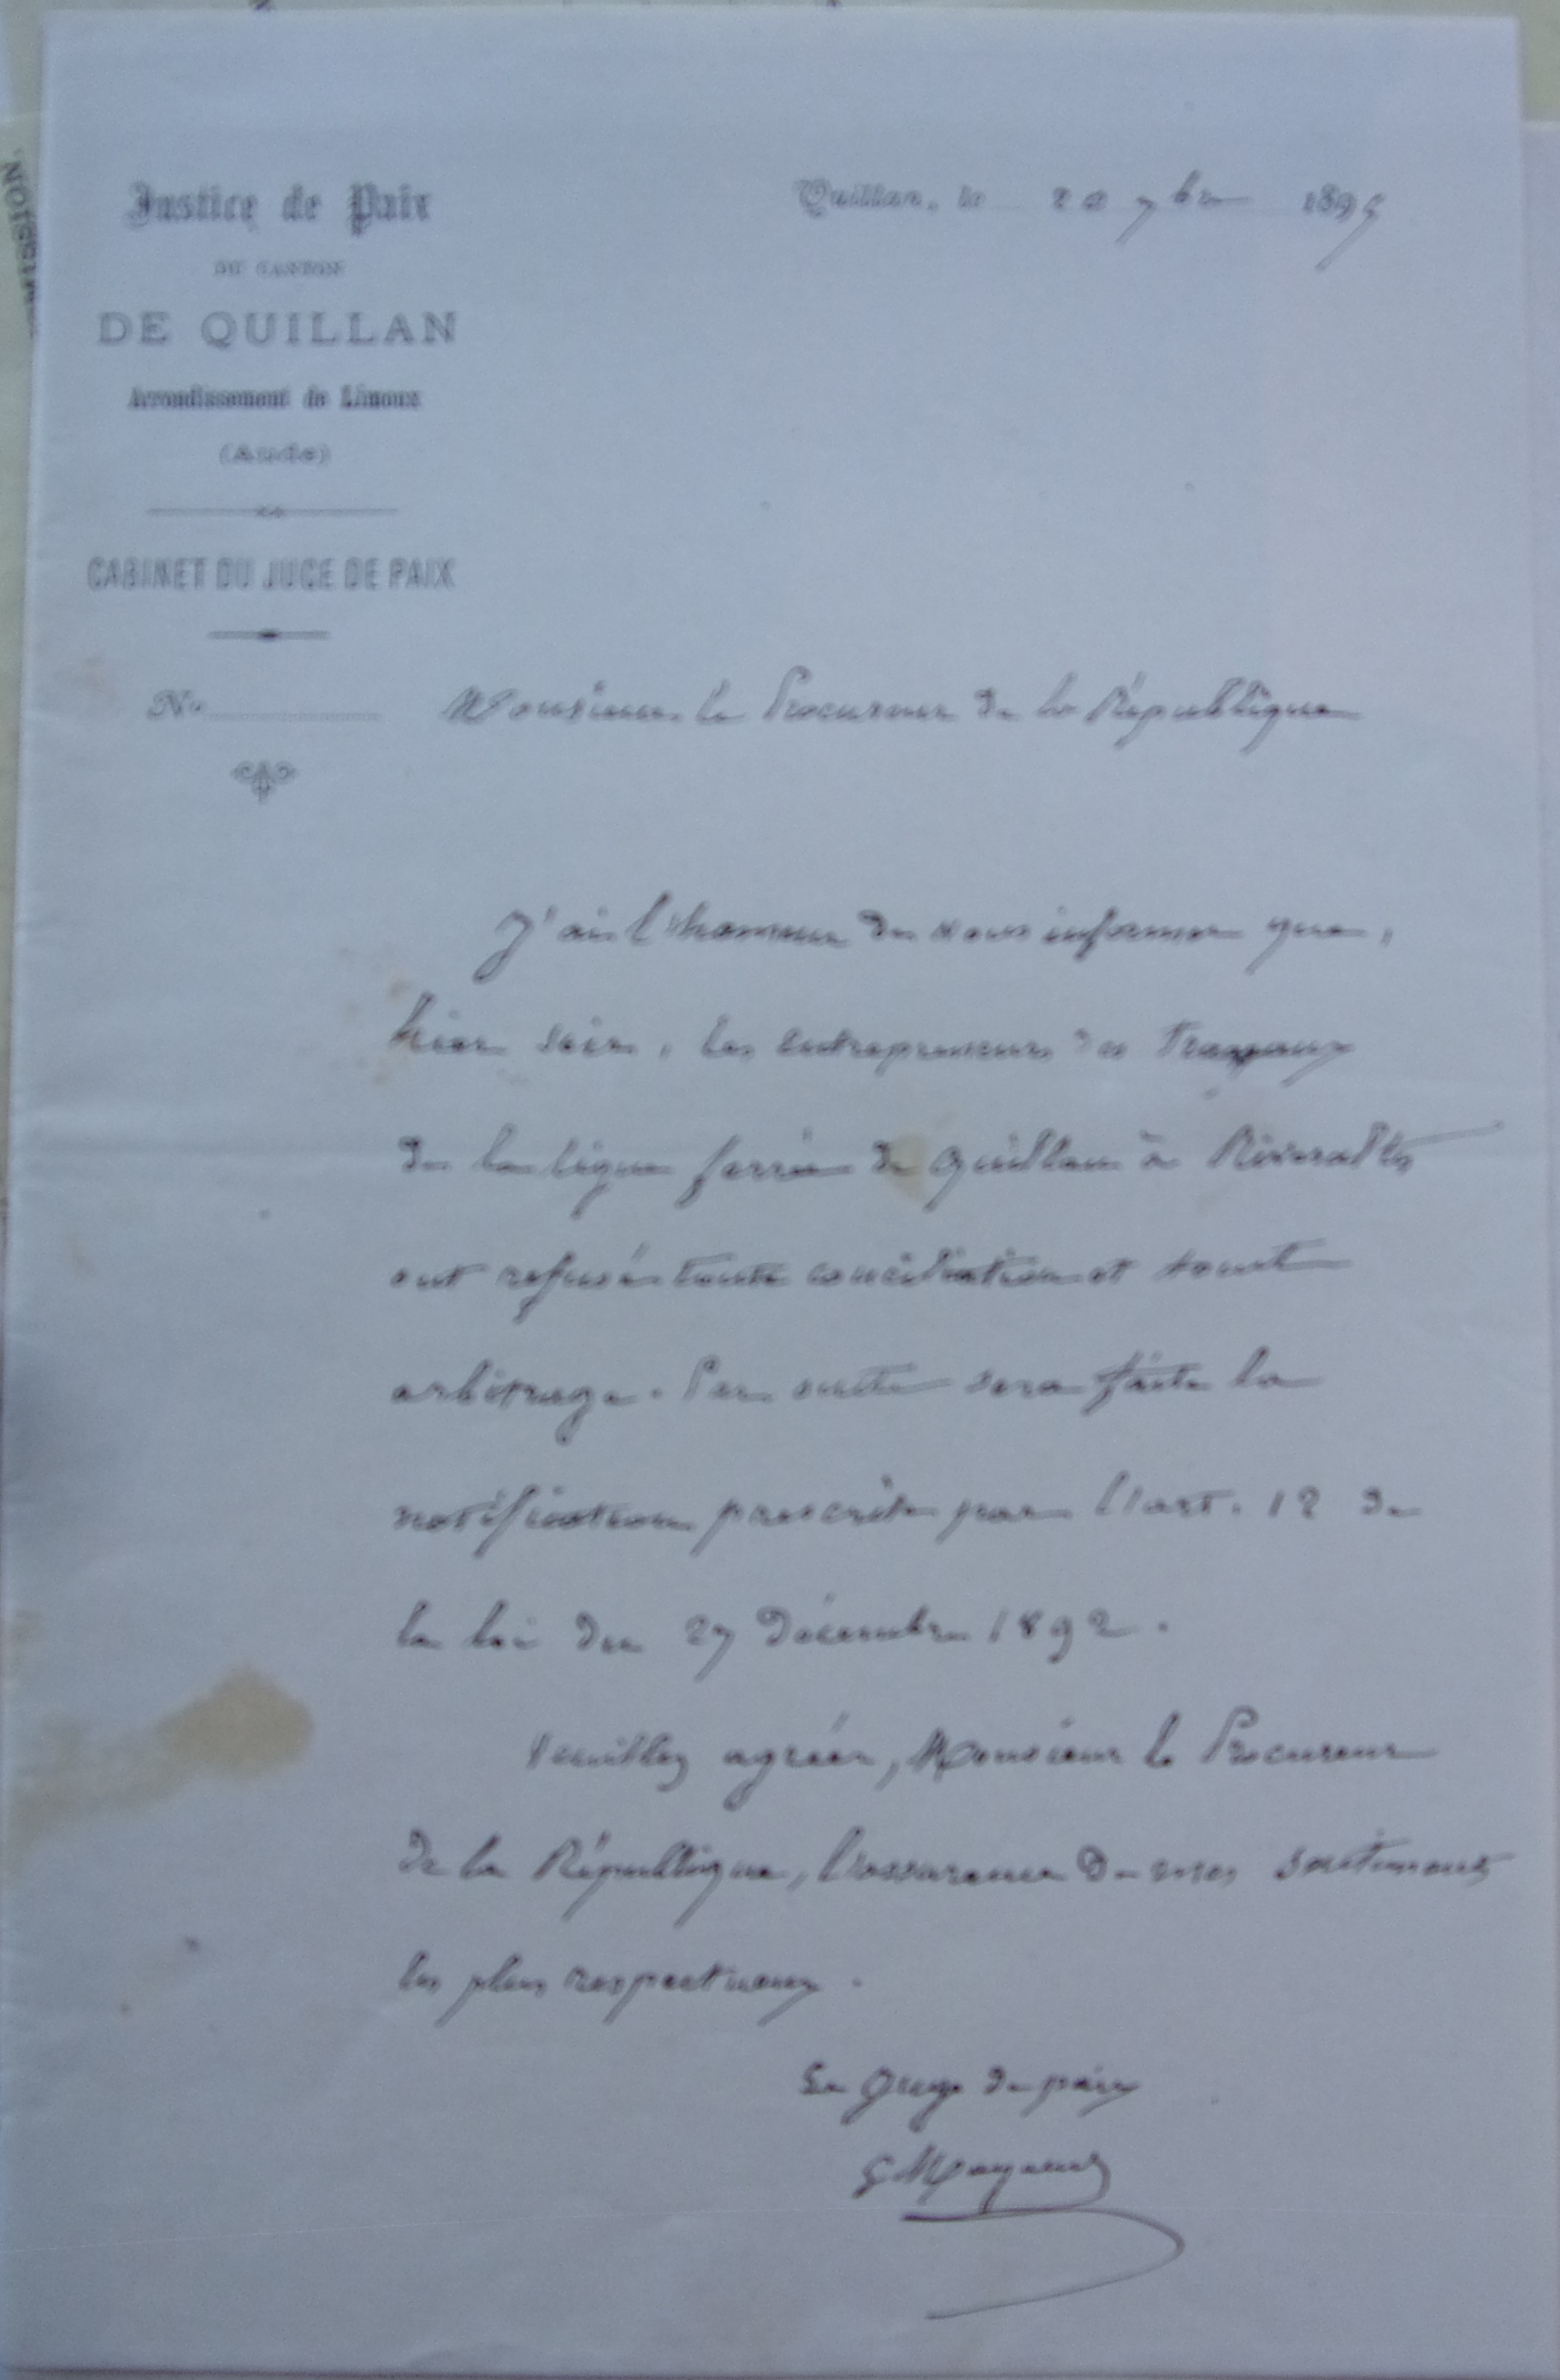 Justice de Paix
DU CANTON
DE QUILLAN
Arrondissement de Limoux
(Aude)
CABINET DU JUGE DE PAIX
No
Quillan, le 20 7bre 1895
Monsieur le Procureur de la République
J'ai l'honneur de vous informer que,
hier soir, les entrepreneurs des travaux
de la ligne ferrée de Quillan à Rivesaltes
ont refusé toute conciliation et tout
arbitrage. Par suite sera faite la
notification prescrite par l'art. 12 de
la loi du 27 Décembre 1892.
Veuillez agréer, Monsieur le Procureur
de la République, l'assurance de mes sentiments
les plus respectueux.
Le Juge de paix